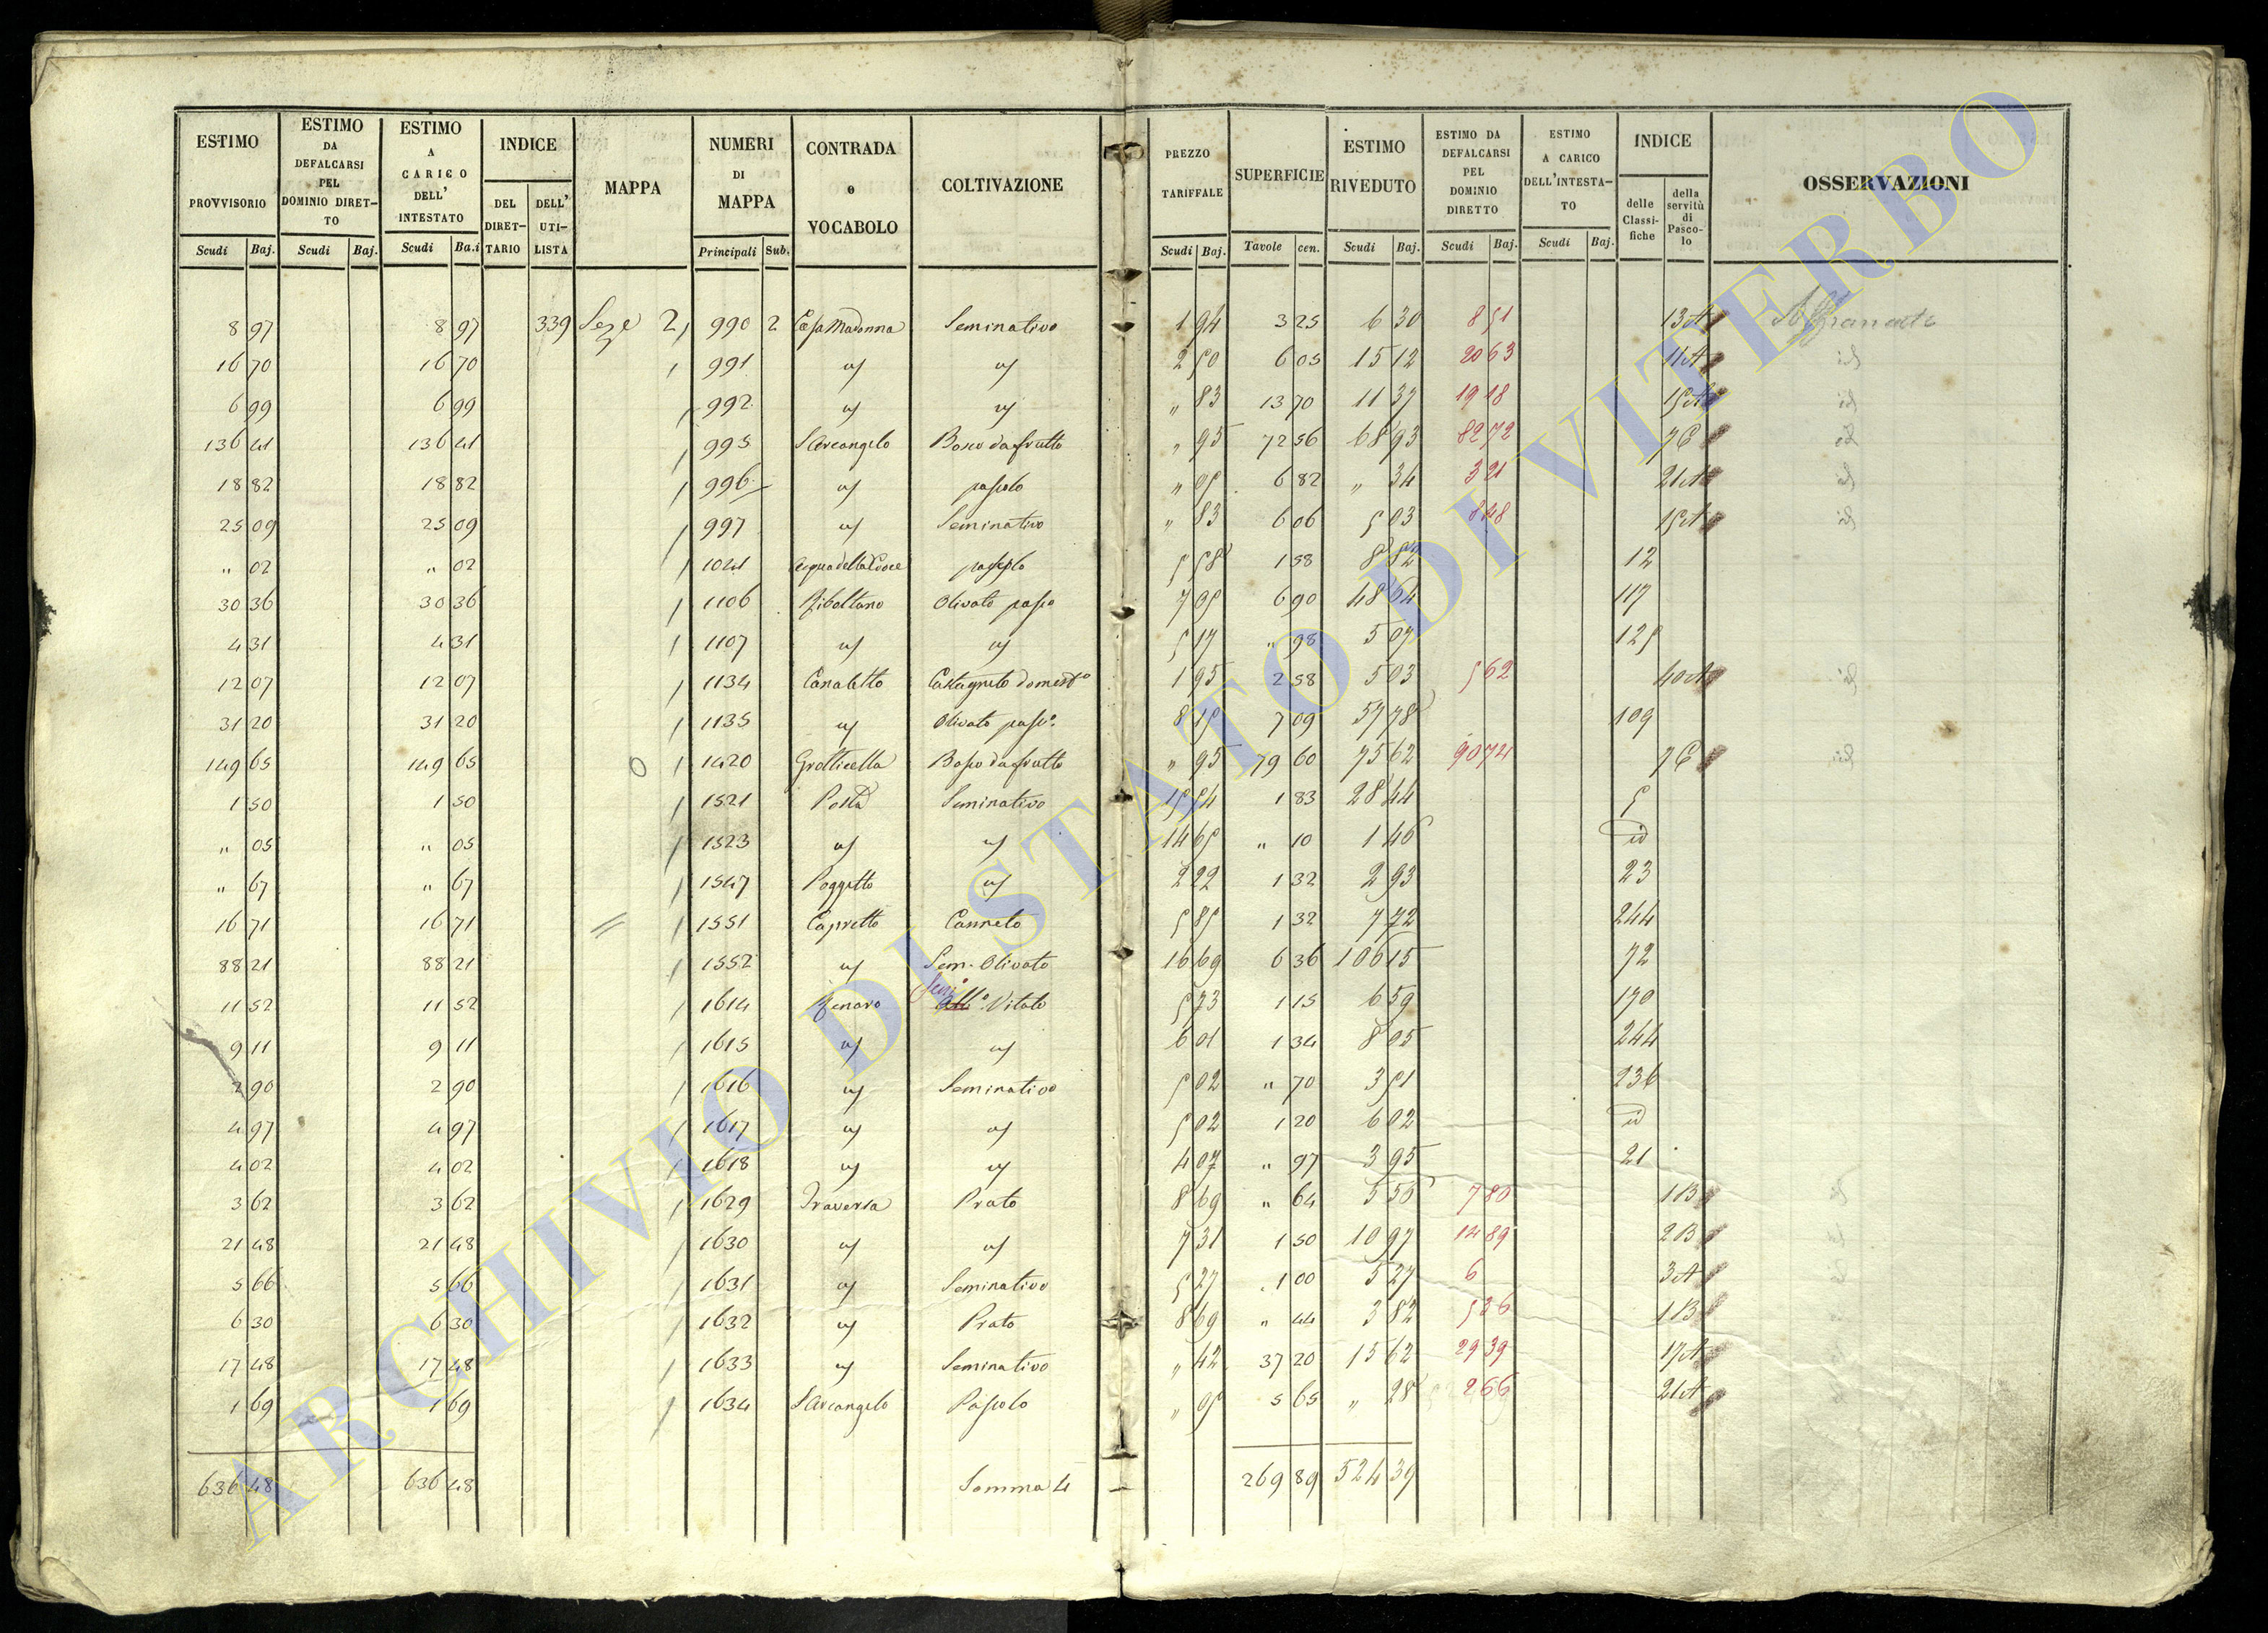 ESTIMO PROVVISORIO ESTIMO DA DEFALCARSI PEL DOMINIO DIRETTO ESTIMO A CARICO DELL' INTESTATO INDICE DEL DIRETTARIO DELL' UTILISTA MAPPA NUMERI DI MAPPA CONTRADA e VOCABOLO COLTIVAZIONE PREZZO TARIFFALE SUPERFICIE ESTIMO RIVEDUTO ESTIMO DA DEFALCARSI PEL DOMINIO DIRETTO ESTIMO A CARICO DELL'INTESTATO INDICE delle Classifiche della servitù di Pascolo OSSERVAZIONI
Scudi Baj. Scudi Baj. Scudi Ba.i Principali Sub. Scudi Baj. Tavole cen. Scudi Baj. Scudi Baj. Scudi Baj.
8 97 8 97 339 2 990 2 Seminativo 1 94 3 25 6 30 8 51 13A
16 70 16 70 991 2 50 6 05 15 12 20 63 11A
6 99 6 99 992 " 83 13 70 11 37 19 18 15A
136 41 136 41 995 S Arcangelo Bosco da frutto " 95 72 56 68 93 82 72 7C
18 82 18 82 996 pascolo " 05 6 82 " 34 3 21 21A
25 09 25 09 997 Seminativo " 83 6 06 5 03 8 48 15A
" 02 " 02 1041 pascolo 5 58 1 58 8 82 12
30 36 30 36 1106 Olivato 7 05 6 90 48 64 117
4 31 4 31 1107 5 17 " 98 5 07 125
12 07 12 07 1134 Canaletto Castagneto domest° 1 95 2 58 5 03 5 62 40A
31 20 31 20 1135 Olivato 8 15 7 09 57 78 109
149 65 149 65 1420 Grotticella Bosco da frutto " 95 79 60 75 62 90 74 7C
1 50 1 50 1521 Posta Seminativo 15 54 1 83 28 44 5
" 05 " 05 1523 14 65 " 10 1 46 id
" 67 " 67 1547 Poggetto 2 22 1 32 2 93 23
16 71 16 71 1551 Capretto Canneto 5 85 1 32 7 72 244
88 21 88 21 1552 Sem. Olivato 16 69 6 36 106 15 72
11 52 11 52 1614 Vitato 5 73 1 15 6 59 170
9 11 9 11 1615 6 01 1 34 8 05 244
2 90 2 90 1616 Seminativo 5 02 " 70 3 51 236
4 97 4 97 1617 5 02 1 20 6 02 id
4 02 4 02 1618 4 07 " 97 3 95 21
3 62 3 62 1629 Traversa Prato 8 69 " 64 5 56 7 80 1B
21 48 21 48 1630 7 31 1 50 10 97 14 89 2B
5 66 5 66 1631 Seminativo 5 27 1 00 5 27 6 3A
6 30 6 30 1632 Prato 8 69 " 44 3 82 5 36 1B
17 48 17 48 1633 Seminativo " 42 37 20 15 62 29 39 17A
1 69 1 69 1634 S Arcangelo Pascolo " 05 5 65 " 28 2 66 21A
636 48 636 48 Somma 4 269 89 524 39
ARCHIVIO DI STATO DI VITERBO